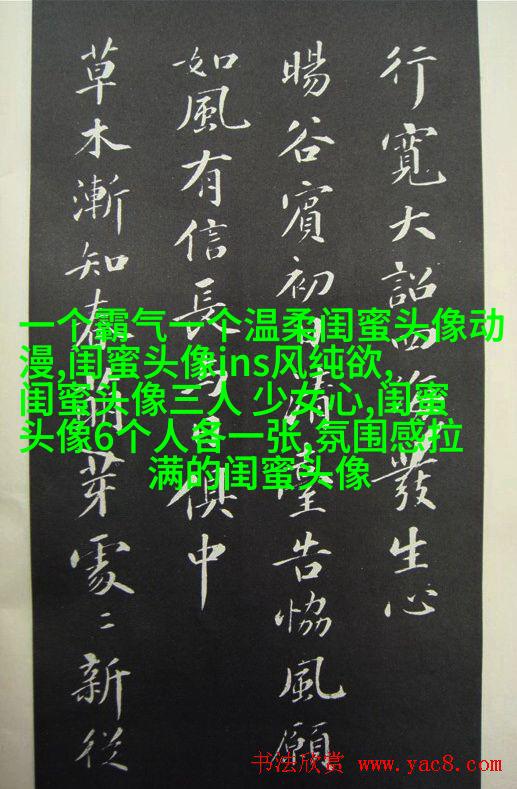 行寬大詔四海發生心
暘谷賓初日清臺告恊風願
如風有信長與日俱中
草木漸知春萌芽處〻新從
一个霸气一个温柔闺蜜头像动
漫,闺蜜头像ins风纯欲,
闺蜜头像三人 少女心,闺蜜
头像6个人各一张,氛围感拉
满的闺蜜头像
书法欣赏 www.yac8.com